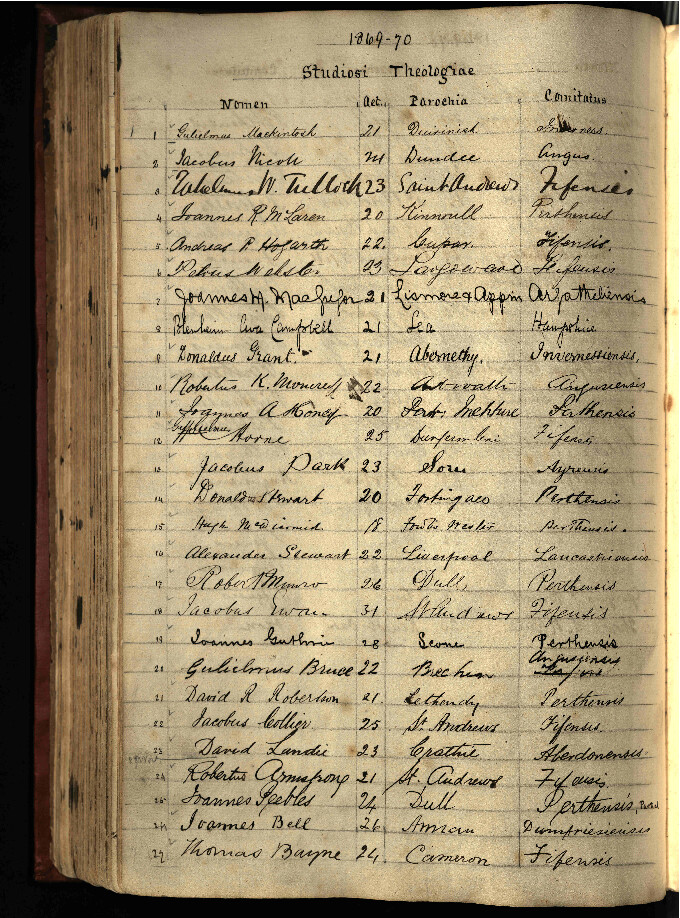 1869-70
Studiosi Theologiae
Nomen Aet. Parochia Comitatus
1 Gulielmus Mackintosh 21 Duirinish Inverness.
2 Jacobus Nicoll 21 Dundee Angus.
3 W. Tulloch 23 Saint Andrews Fifensis
4 Joannes R. McLaren 20 Kinnoull Perthensis
5 Andreas F. Hogarth 22. Cupar. Fifensis.
6 Petrus Webster 23 Largoward Fifensis
7 Joannes H. MacGregor 21 Lismore & Appin Argatheliensis
8 Blenheim Ava Campbell 21 Sea Hampshire
9 Donaldus Grant. 21 Abernethy. Invernessiensis,
10 Robertus K. Moncreiff 22 Angusensis
11 Joannes A. Honey 20 Perthensis
12 Gulielmus Horne 25 Fifensis
13 Jacobus Park 23 Sorn Ayrensis
14 Donald Stewart 20 Fortingall Perthensis
15 Hugh McDiarmid 18 Fowlis Wester Perthensis.
16 Alexander Stewart 22 Liverpool
17 Robert Munro 26 Dull, Perthensis
18 Jacobus Ewan. 31 St Andrews Fifensis
19 Joannes Guthrie 28 Scone Perthensis
20 Gulielmus Bruce 22 Brechin Angusensis
21 David R Robertson 21. Lethendy Perthensis
22 Jacobus Collier 25 St Andrews Fifensis.
23 David Landie 23 Crathie Aberdonensis
24 Robertus Armstrong 21 St. Andrews Fifensis
25 Joannes Peebles 24 Dull Perthensis,
26 Joannes Bell 26 Annan Dumfriesiensis
27 Thomas Bayne 24. Cameron Fifensis